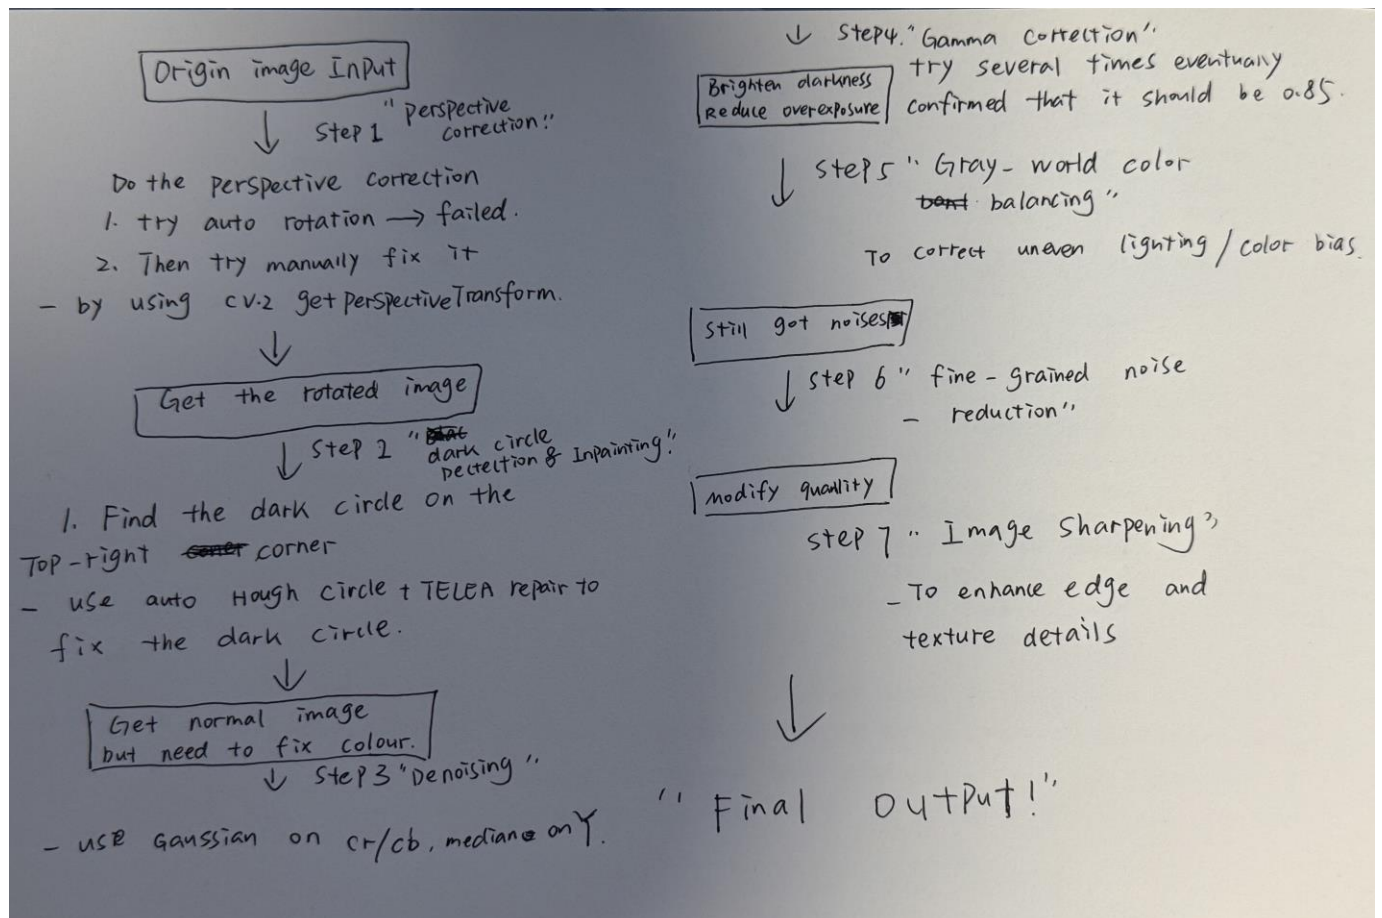 Origin image Input
Step 1 "perspective
correction."
Do the perspective correction
1. try auto rotation → failed.
2. Then try manually fix it
- by using cv.2 getperspectiveTransform.
Get the rotated image
Step 2 "dark circle
Dectection & Inpainting."
1. Find the dark circle on the
Top-right corner
- use auto Hough circle + TELEA repair to
fix the dark circle.
Get normal image
but need to fix colour.
Step 3 "Denoising"
- use Gaussian on cr/cb, median on Y.
Step4. "Gamma correction"
Brighten darkness
Reduce overexposure
try several times eventually
confirmed that it should be 0.85.
step5 "Gray-world color
balancing"
To correct uneven lighting/color bias.
still got noises
step 6 "fine-grained noise
- reduction"
modify quanlity
step 7 "Image sharpening"
- To enhance edge and
texture details
"Final output!"